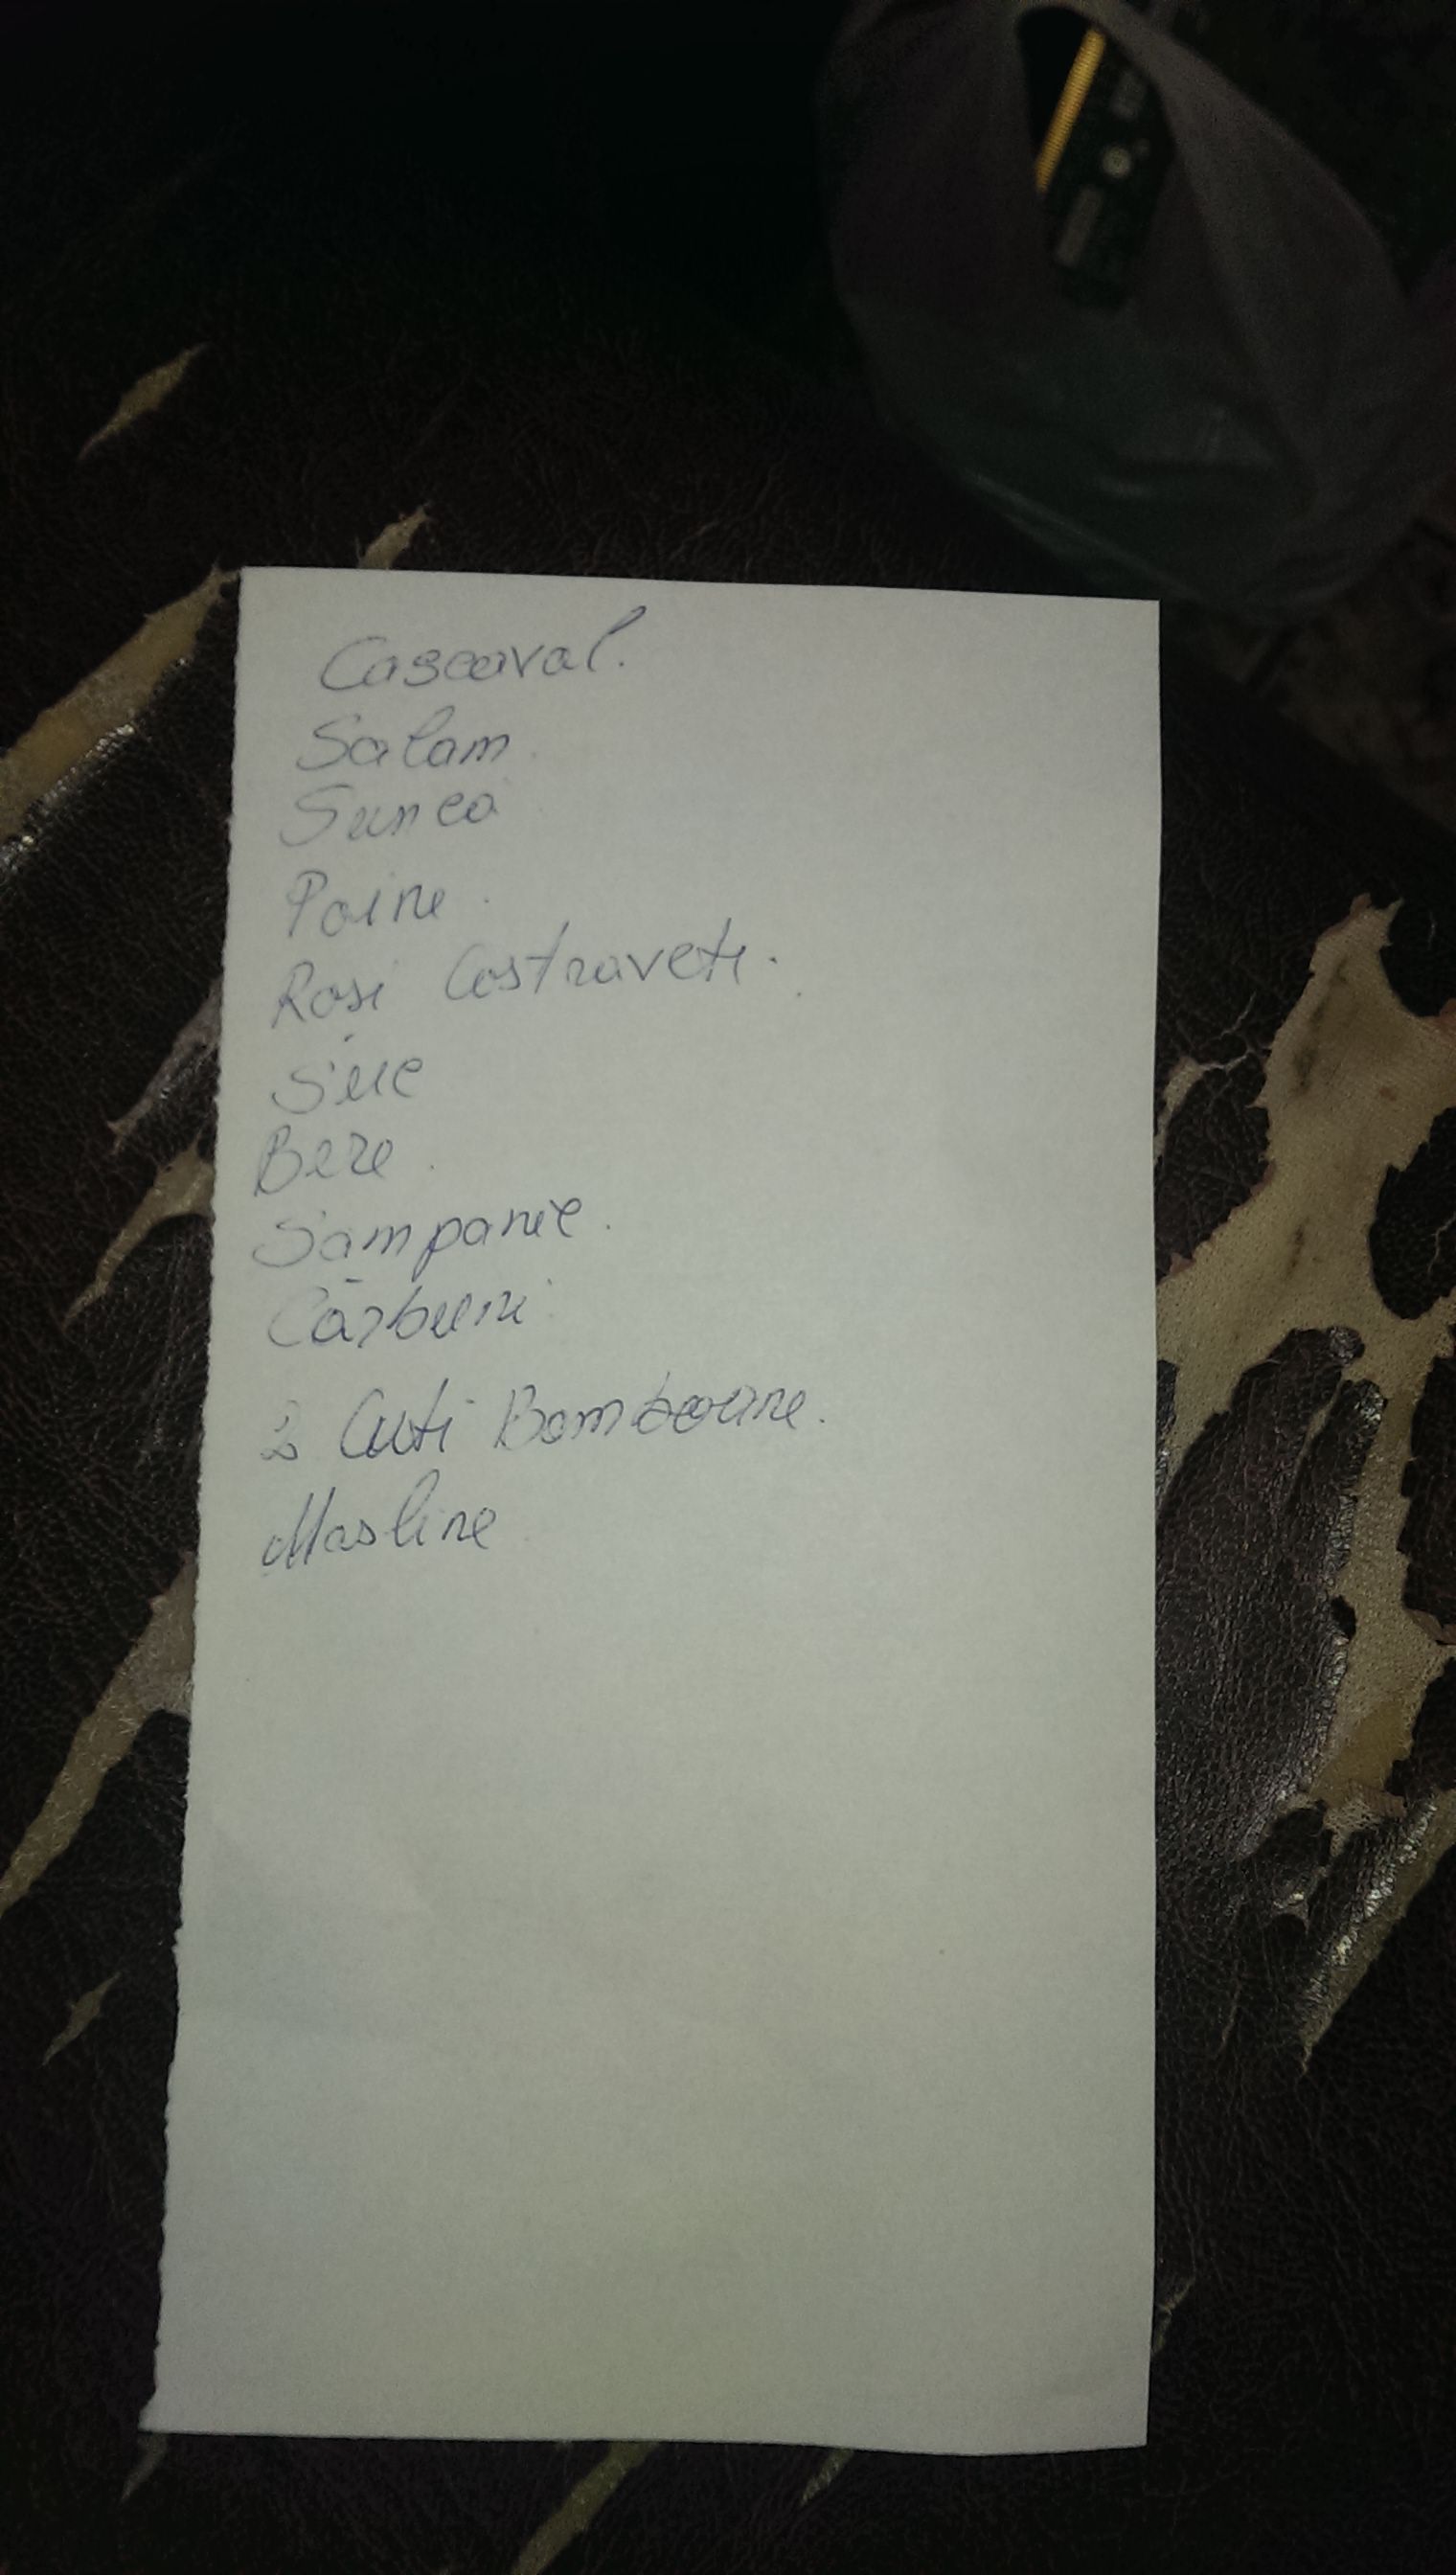 Cascaval.
Salam
Sunca
Paine.
Rosi Castraveti.
Suc
Bere.
Sampanie.
Cărbuni.
2 Cutii Bomboane.
Masline